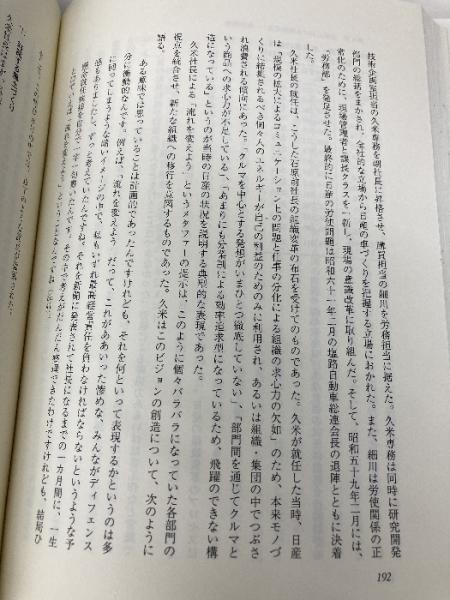 技術企画室担当の久米専務を副社長に昇格させ、購買担当の細川を労務担当に据えた。久米専務は同時に研究開発
部門の総括をまかされ、全社的な立場から日産の車づくりを把握する立場におかれた。また、細川は労使関係の正
常化のために、現場管理者と課長クラスを一新し、現場の意識改革に取り組んだ。そして、昭和五十九年二月には、
「労務部」を発足させた。最終的に日産の労使問題は昭和六十一年二月の塩路自動車総連会長の退陣とともに決着
した。
久米社長の就任は、こうした石原前社長の組織変革の布石を受けてのものであった。久米が就任した当時、日産
は「規模の拡大によるコミュニケーションの問題と仕事の分化による組織の求心力の欠如」のため、本来モノづ
くりに結集されるべき個々人のエネルギーが自己の利益のためのみに利用され、あるいは組織・集団の中でつぶさ
れ浪費される傾向にあった。「クルマを中心とする発想がいまひとつ徹底していない」、「部門間を通じてクルマと
いう商品への求心力が不足している」、「あまりにも分業制による効率追求型になっているため、飛躍のできない構
造になっている」というのが当時の日産の状況を説明する典型的な表現であった。
久米社長による「流れを変えよう」というメタファーの提示は、このように個々バラバラになっていた各部門の
視点を統合させ、新たな組織への移行を意図するものであった。久米はこのビジョンの創造について、次のように
語る。
ある意味では思っていることは計画的であったんですけれども、それを何といって表現するかというのは多
分に衝動的なんです。例えば、「流れを変えよう」だって、これがああいった惨めな、みんながディフェンス
に回ってしまうような暗いイメージの中で、私もいずれ最高経営責任を負わなければならないというような予
感もありましたし、ずっと考えていたんですね。それを新聞に発表されて社長になるまでの一カ月間に、一生
192